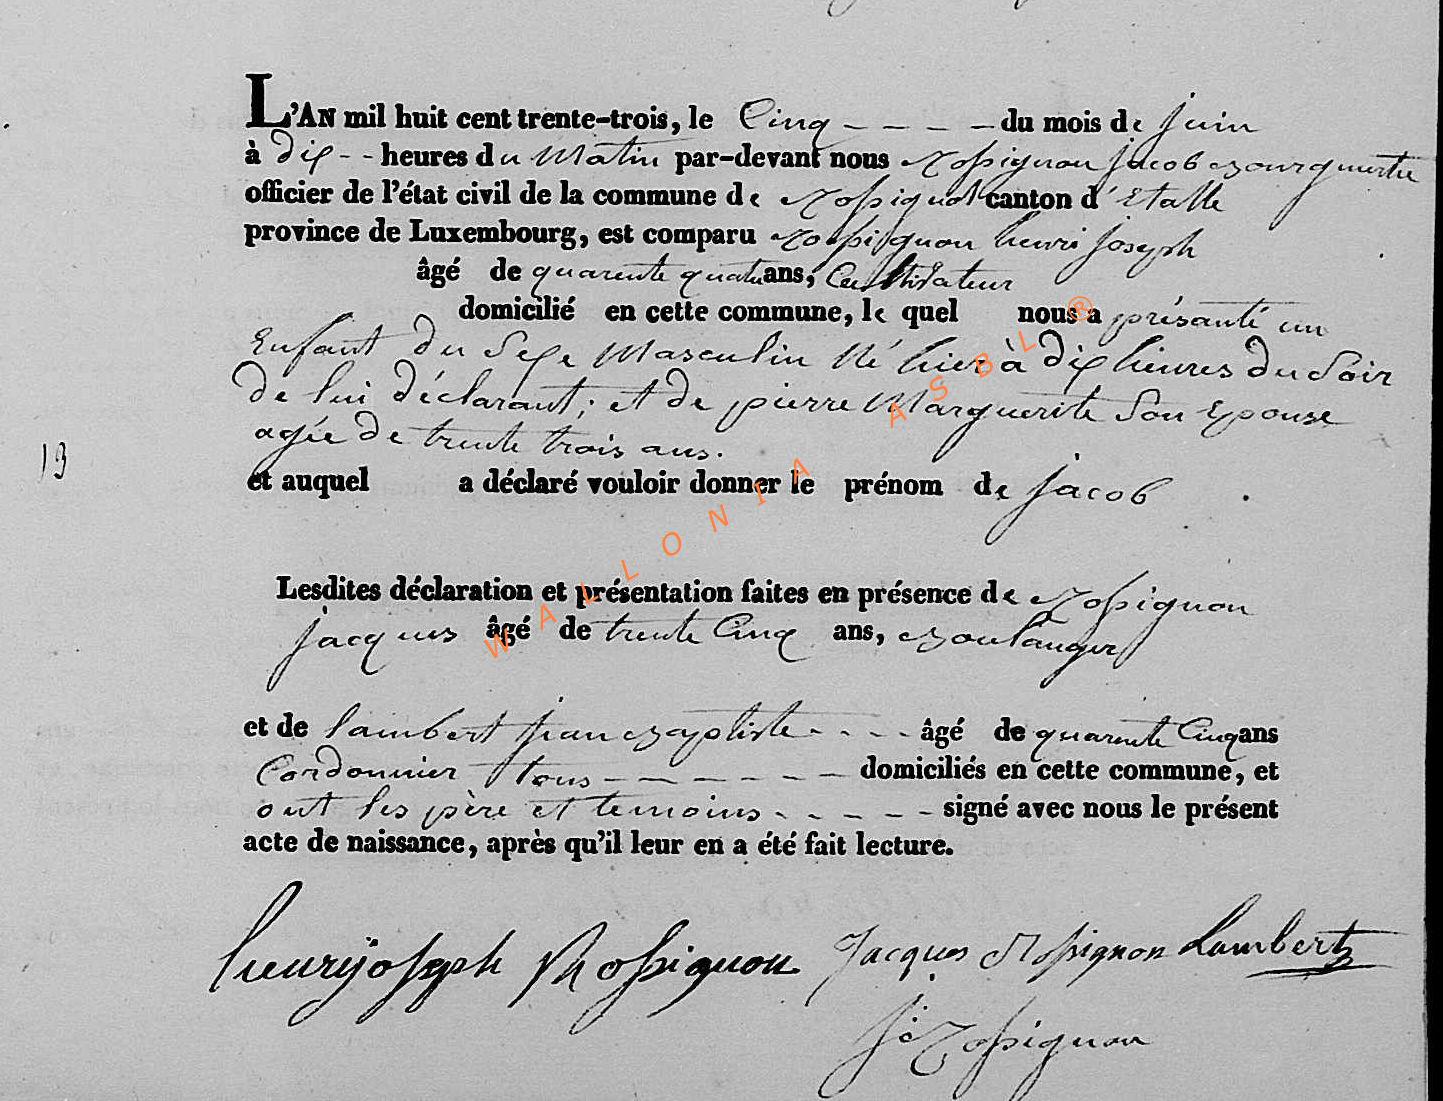 L'AN mil huit cent trente-trois, le Cinq - - - - - du mois de juin
à dix - - heures du Matin par-devant nous Rossignon jacob Bourguestre
officier de l'état civil de la commune de Rossignol canton d'Etalle
province de Luxembourg, est comparu Rossignon henri joseph
âgé de quarente quatre ans, Cultivateur
domicilié en cette commune, le quel nous a présanté un
Enfant du Sexe Masculin Né hier à dix heures du Soir
de lui déclarant; et de pierre Marguerite Son Epouse
agée de trente trois ans.
13
et auquel a déclaré vouloir donner le prénom de jacob
Lesdites déclaration et présentation faites en présence de Rossignon
jacques âgé de trente Cinq ans, Boulanger
et de lambert jean Baptiste - - - - âgé de quarente Cinq ans
Cordonnier tous - - - - - - - domiciliés en cette commune, et
ont les père et temoins - - - - - signé avec nous le présent
acte de naissance, après qu'il leur en a été fait lecture.
henry joseph Rossignon Jacques Rossignon Lambert
J: Rossignon
WALLONIA ASBL ®